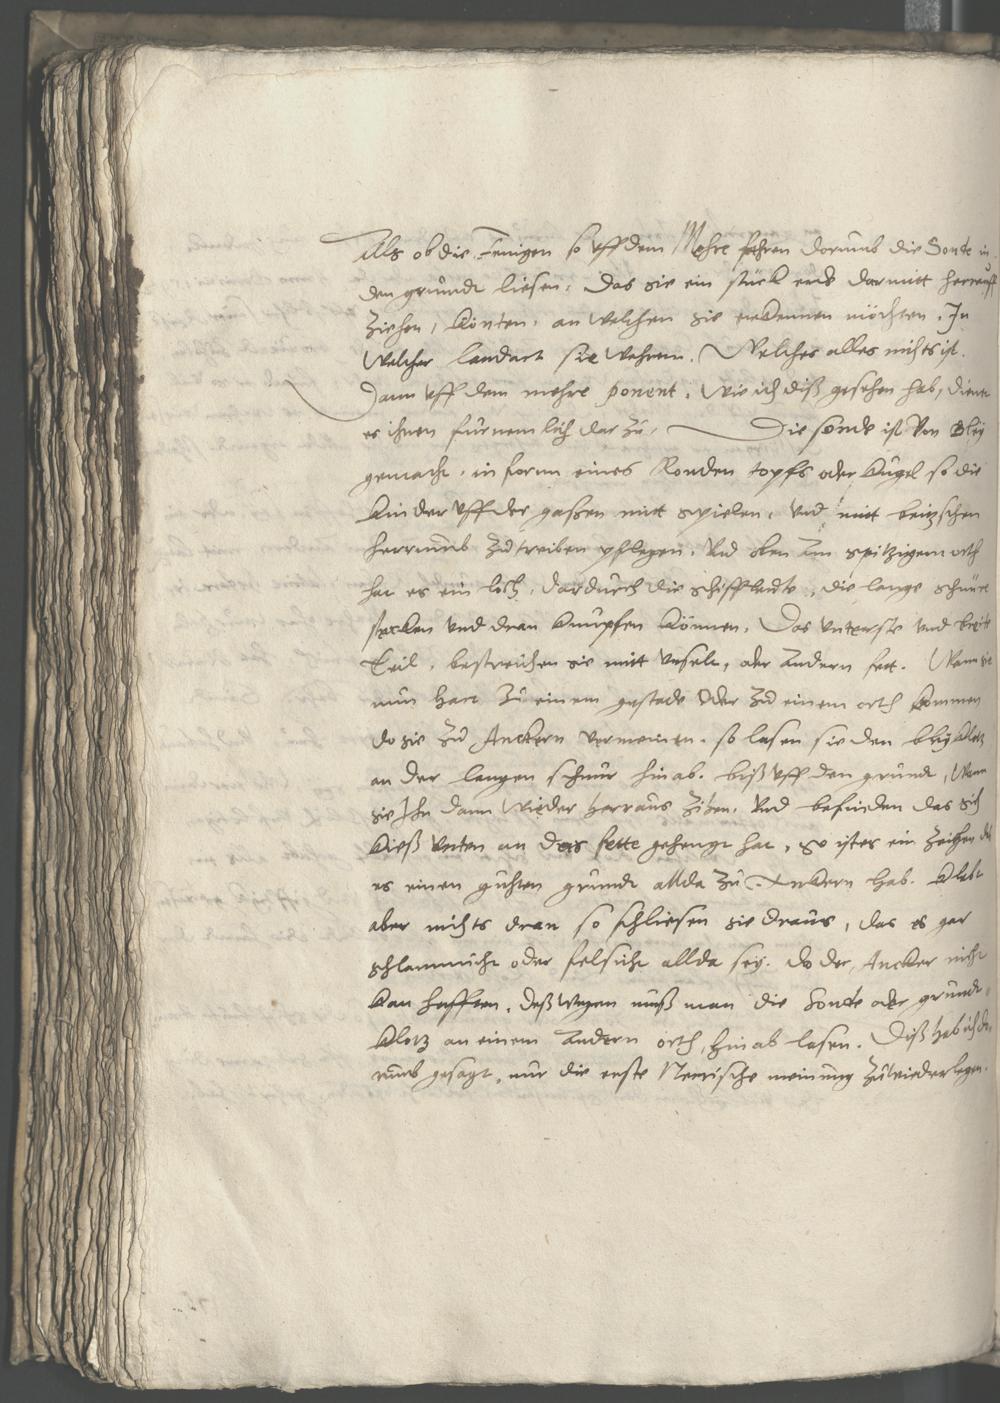 Als ob die Jenigen so vff dem Mehre fehren dorumb die Sonde in
den grundt liesen, das sie ein stück erds darmitt herrauff
Ziehen, könten, an welchen sie erkennen möchten, In
Welcher landart sie wehren. Welches alles nichts ist.
Dann vff dem mehre ponent, wie ich diß gesehen hab, dienet
es ihnen fürnemlich dar zu, Die sonde ist von Bley
gemacht, in form eines Ronden topfs oder kugel so die
kinder vff der gaßen mitt spielen, vnd mitt beitzschen
herrumb zutreiben pflegen, Vnd oben am spitzigem orth
hat es ein loch, dardurch die schiffleudte, die lange schnüre
stecken vnd dran knüpfen können, Das vnterste vnd breitt
teil, bestreichen sie mitt vnselt, oder andern fett. Wann sie
nun hart Zu einem gestade oder zu einem orth kommen
do sie zu Anckern vermeinen, so lasen sie den bley klotz
an der langen schnur hinab, biß vff den grundt, Wann
sie Ihn dann wieder herraus zihen, Vnd befinden das sich
kieß vnten an das fette gehengt hat, so ist es ein zeichen das
es einen guhten grundt allda zu Ankern hab. klebt
aber nichts dran so schliesen sie draus, das es gar
schlammicht oder felsicht allda sey. do der Ancker nicht
kan hafften, deßwegen muß man die Sonde oder grundt
klotz an einem andern orth, hinab lasen. Diß hab ich da
rumb gesagt, nur die erste Neerische meinung zu wiederlegen.